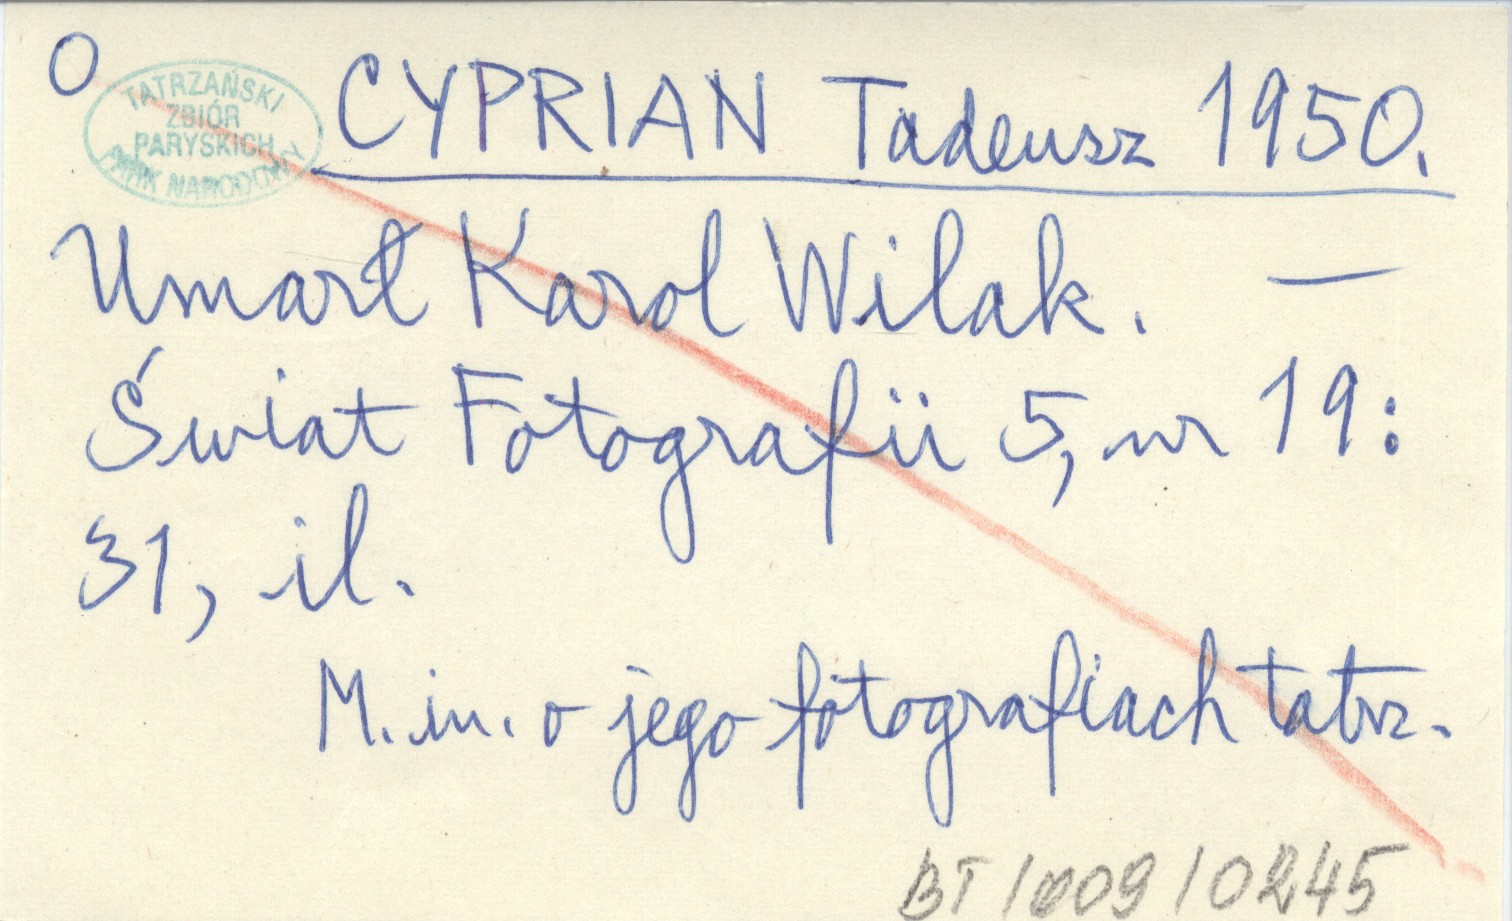 O
TATRZAŃSKI
ZBIÓR
PARYSKICH
PARK NARODOWY
CYPRIAN Tadeusz 1950.
Umarł Karol Wilak. —
Świat Fotografii 5, nr 19:
31, il.
M. in. o jego fotografiach tatrz.
BT/009/0245